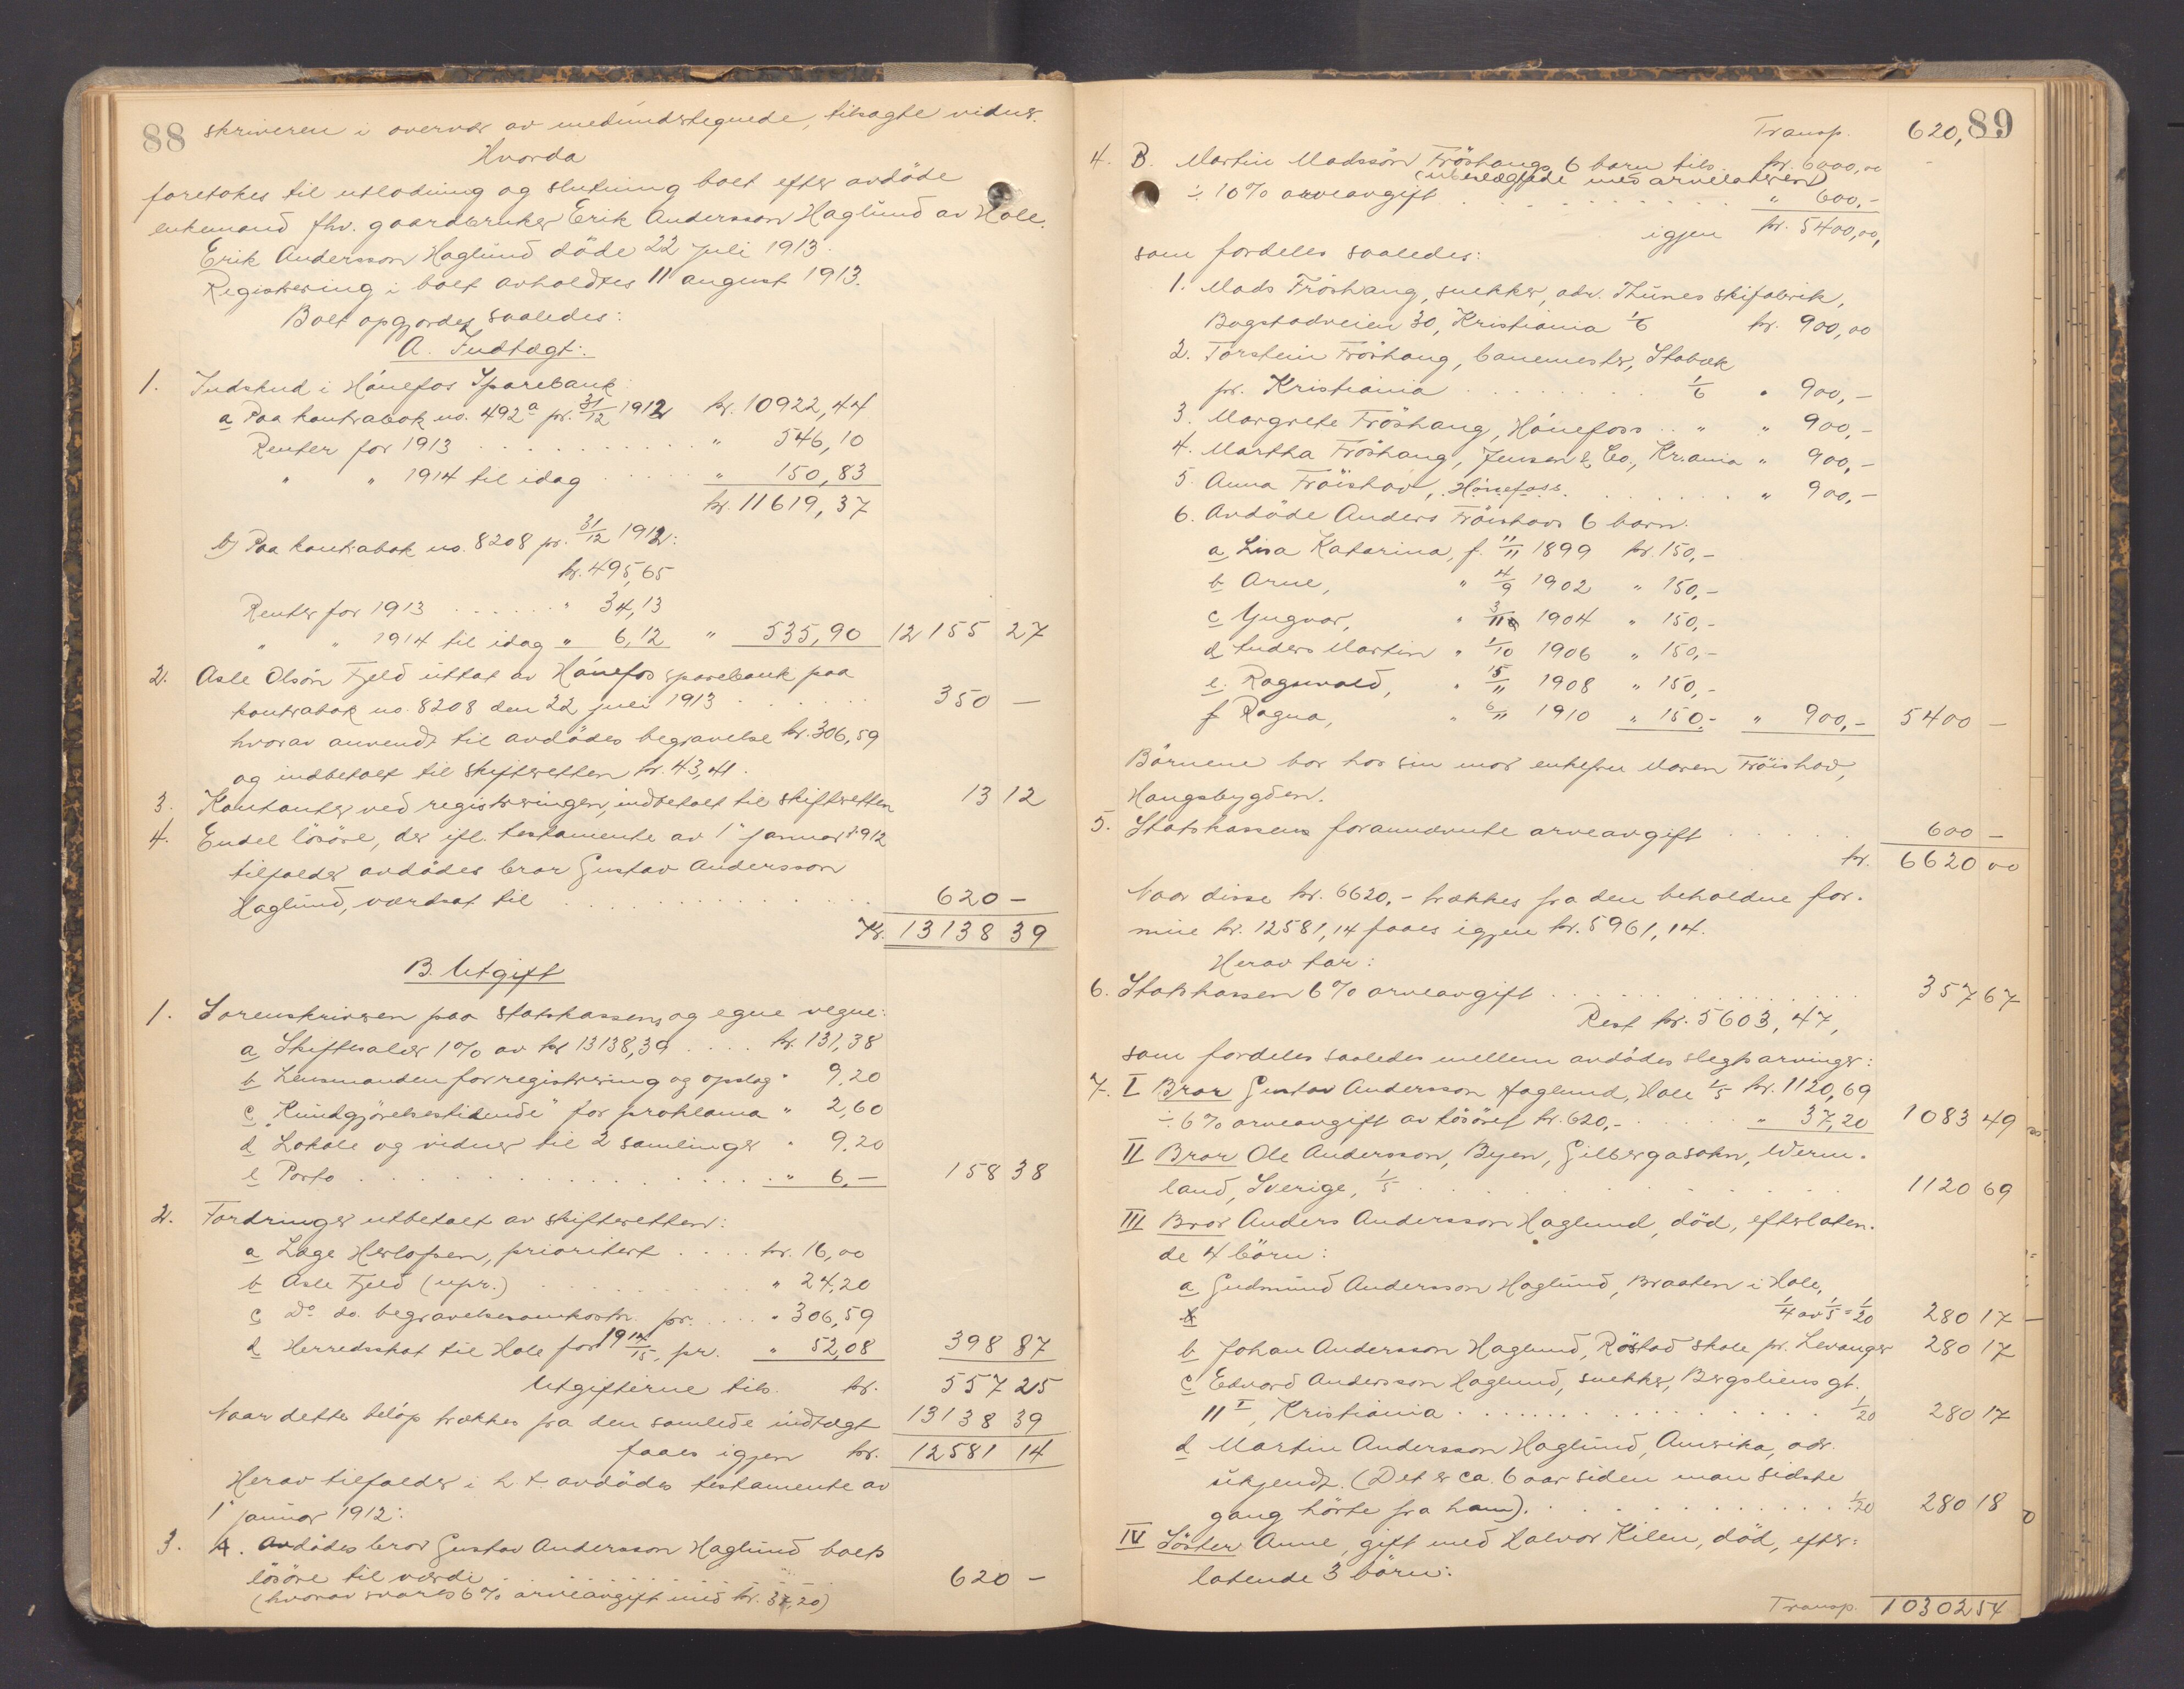 88
skriveren i overvær av medundertegnede, tilsagte vidner.
Hvorda
foretokes til utlodning og slutning boet efter avdöde
enkemand fhv. gaardbruker Erik Andersson Haglund av Hole.
Erik Andersson Haglund döde 22 juli 1913.
Registrering i boet avholdtes 11 august 1913.
Boet opgjordes saaledes:
A. Indtægt:
1. Indskud i Hönefos Sparebank:
a Paa kontrabok no. 492a pr. 31/12 1912 kr. 10922,44
Renter for 1913 . . . . . . . . " 546,10
" " 1914 til idag . . . . . " 150,83
kr. 11619,37
b) Paa kontrabok no. 8208 pr. 31/12 1912:
kr. 495,65
Renter for 1913 . . . . . . " 34,13
" " 1914 til idag " 6,12 " 535,90 12155 27
2. Asle Olsön Fjeld uttat av Hönefos sparebank paa
kontrabok no. 8208 den 22 juli 1913 . . . . . . 350 —
hvorav anvendt til avdödes begravelse kr. 306,59
og indbetalt til skifteretten kr. 43,41.
3. Kontanter ved registreringen, indbetalt til skifteretten 13 12
4. Endel lösöre, der ifl. testamente av 1' januar 1912
tilfalder avdödes bror Gustav Andersson
Haglund, værdsat til . . . . . . . . . . . . . 620 —
Kr. 13138 39
B. Utgift
1. Sorenskriveren paa statskassens og egne vegne:
a Skiftesalær 1% av kr 13138,39 . . . . kr. 131,38
b Lensmanden for registrering og opslag " 9,20
c "Kundgjörelsestidende" for proklama " 2,60
d Lokale og vidner til 2 samlinger " 9,20
e Porto . . . . . . . . . . . . . . . . . " 6,— 158 38
2. Fordringer utbetalt av skifteretten:
a Læge Herlofsen, prioritert . . . . kr. 16,00
b Asle Fjeld (upr.) . . . . . . . . . " 24,20
c Do do. begravelsesomkostn. pr. . . . . " 306,59
d Herredsskat til Hole for 1914/15, pr. " 52,08 398 87
Utgifterne tils. kr. 557 25
Naar dette belöp trækkes fra den samlede indtægt 13138 39
faaes igjen kr. 12581 14
Herav tilfalder i h. t. avdödes testamente av
1' januar 1912:
3. A. Avdödes bror Gustav Andersson Haglund boets
lösöre til værdi . . . . . . . . . . . . . . . . 620 —
(hvorav svares 6% arveavgift med kr. 37,20)
89
Transp. 620,
4. B. Martin Madssön Fröshaugs 6 barn tils. kr. 6000,00 -
(ubeslægtede med arvelateren)
÷ 10% arveavgift . . . . . . . . . . " 600.-
igjen kr. 5400,00,
som fordeles saaledes:
1. Mads Fröshaug, snekker, adr. Thunes skifabrik,
Bogstadveien 30, Kristiania 1/6 kr. 900,00
2. Torstein Fröshaug, banemester, Stabæk
pr. Kristiania . . . . . . . . 1/6 " 900,—
3. Margrete Fröshaug, Hönefoss . . " " 900,—
4. Martha Fröshaug, Jensen & Co., Kr.ania " 900,—
5. Anna Fröishov, Hönefoss. . . . . . . . " 900,—
6. Avdöde Anders Fröishovs 6 barn:
a Lisa Katarina, f. 11/11 1899 kr. 150,-
b Arne, " 4/9 1902 " 150,-
c Yngvar, " 3/11 1904 " 150,-
d Anders Martin " 1/10 1906 " 150,-
e. Ragnvald, " 15/11 1908 " 150,-
f Ragna, " 6/11 1910 " 150.- " 900,- 5400 —
Börnene bor hos sin mor enkefru Maren Fröishov,
Haugsbygden.
5. Statskassens forannævnte arveavgift . . . . . 600 —
kr. 6620 00
Naar disse kr. 6620,- trækkes fra den beholdne for-
mue kr. 12581,14 faaes igjen kr. 5961,14.
Herav tar:
6. Statskassen 6% arveavgift . . . . . . . . . . . . . 357 67
Rest kr. 5603,47,
som fordeles saaledes mellem avdödes slegtsarvinger:
7. I Bror Gustav Andersson Haglund, Hole 1/5 kr. 1120,69
÷ 6% arveavgift av lösöret kr. 620,- . . . . . " 37,20 1083 49
II Bror Ole Andersson, Byen, Gilbergasokn, Werm-
land, Sverige, 1/5 . . . . . . . . . . . . . 1120 69
III Bror Anders Andersson Haglund, död, efterlaten-
de 4 börn:
a Gudmund Andersson Haglund, Braaten i Hole,
1/4 av 1/5 = 1/20 280 17
b Johan Andersson Haglund, Röstad skole pr. Levanger 280 17
c Edvard Andersson Haglund, snekker, Bergsliens gt.
11 I, Kristiania . . . . . . . . . . . . . . . . 1/20 280 17
d Martin Andersson Haglund, Amerika, adr.
ukjendt. (Det er ca. 6 aar siden man sidste
gang hörte fra ham). . . . . . . . . . . . . . 1/20 280 18
IV Söster Anne, gift med Halvor Kilen, död, efter-
latende 3 börn:
Transp. 10302 54